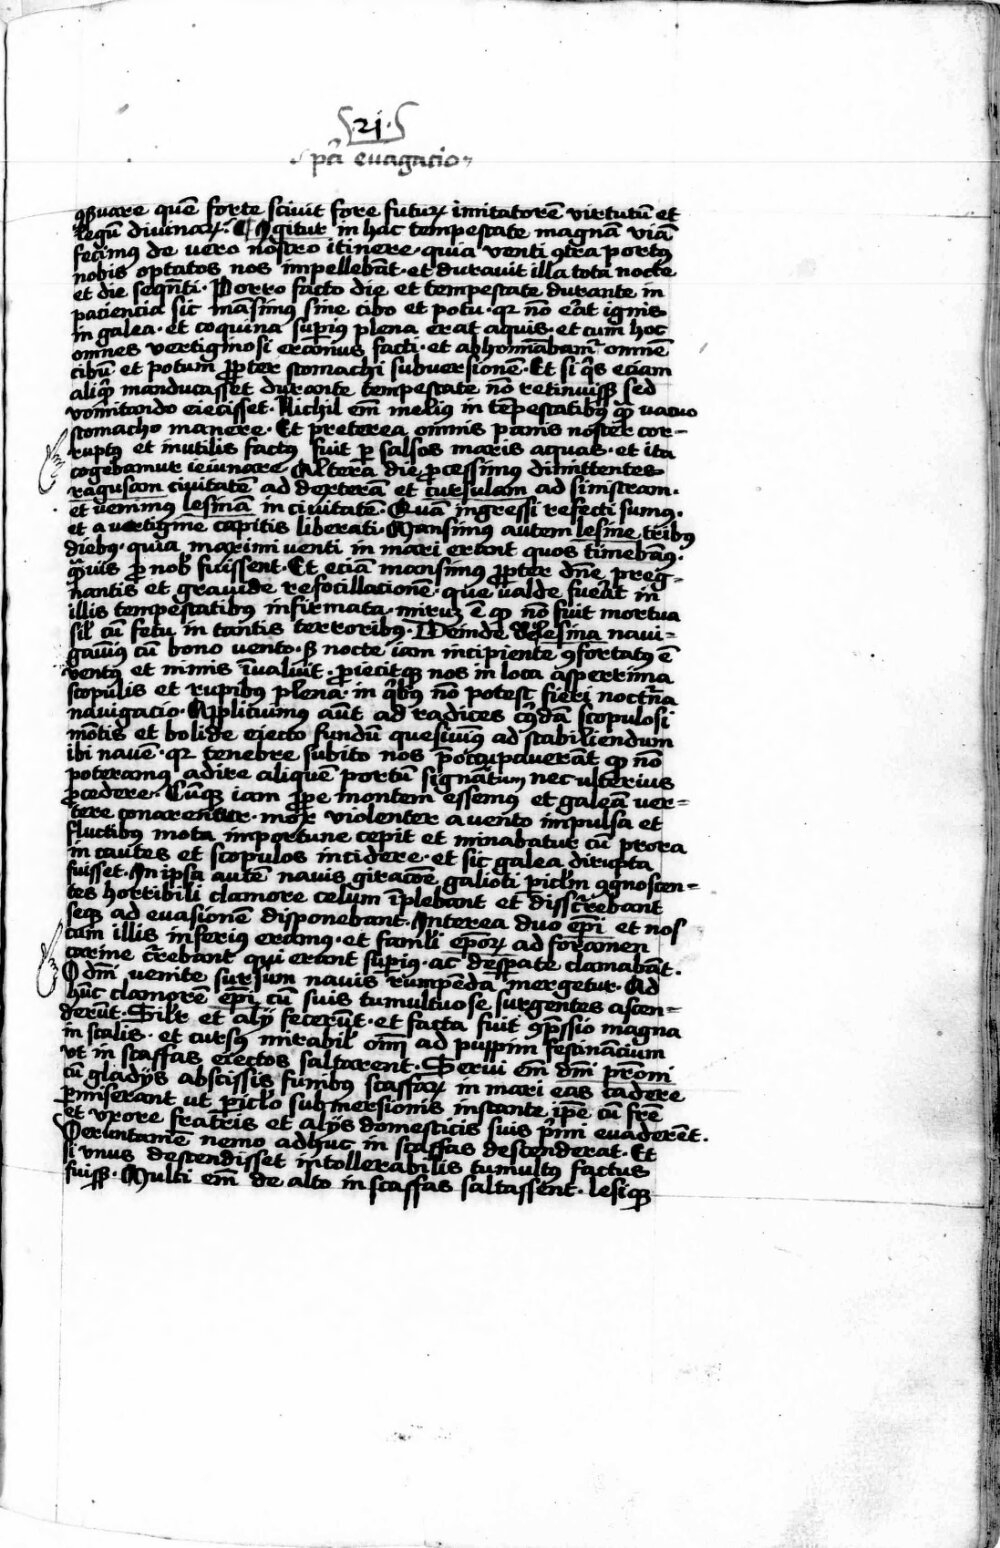 ·21·
p̄a evagacio
ꝯẜuare quē forte sciuit fore futuꝝ imitatorē virtutū et
legū diuinaꝝ. Igitur in hac tempestate magnā viā
fecimus de vero nostro itinere · quia venti ꝯtra portꝯ
nobis optatos nos impellebāt · et durauit illa tota nocte
et die seqn̄ti · Porro facto die et tempestate durante in
paciencia sic māsimus sine cibo et potu · qr nō erat ignis
in galea · et coquina supiꝯ plena erat aquis · et cum hoc
omnes vertiginosi eramus facti · et abhominabamr omnē
cibū et potum ꝓpter stomachi subuersionē · Et si qͥs eciam
aliqͥd manducasset durante tempestate nō retinuisꝫ sed
vomitando eiecisset · Nichil em̄ meliꝯ in tēpestatibꝯ qͣ vacuo
stomacho manere · Et preterea omnis panis noster cor-
ruptꝯ et inutilis factꝯ fuit ꝑ salsos maris aquas · et ita
cogebamur ieiunare · Altera die ꝓcessimus dimittentes
ragusam ciuitatē ad dexterā et cursulam ad sinistram ·
et venimus lesinā in ciuitatē · Quā ingressi refecti sumꝯ ·
et a vertigine capitis liberati · Mansimus autem lesine tribꝯ
diebꝯ · quia maximi venti in mari erant quos timebāꝯ ·
qͣuis ꝓ nobͥ fuissent · Et eciā mansimus ꝓpter dn̄e preg-
nantis et grauide refocillationē · que valde fuerat in
illis tempestatibꝯ infirmata · miruꝫ ē qͩ nō fuit mortua
sil̄ cū fetu in tantis terroribꝯ · Deinde de lesina naui-
gauimꝯ cū bono vento · ẜ nocte iam incipiente ꝯfortatꝯ ē
ventꝯ et nimis īualuit · ꝓiecitqꝫ nos in loca asperrima
scopulis et rupibꝯ plena · in qͥbꝯ nō potest fieri noctr̄na
nauigacio · Applicuimꝯ aūt ad radices cꝰdā scopulosi
mōtis et bolide eiecto fundū quesiuimꝯ ad stabiliendum
ibi nauē · qr tenebre subito nos p̄occupauerāt qͩ nō
poteramꝯ adire aliquē portū signatum nec vlterius
ꝓcedere · Cūqꝫ iam ꝓpe montem essemus et galeā ver-
tere conarentur · mox violenter a vento impulsa et
fluctibus mota importune cepit et minabatur cū prora
in cautes et scopulos incidere · et sic galea dirupta
fuisset · In ipsa autē nauis giracōe galioti piclm̄ ꝯgnoscen-
tes horribili clamore celum īplebant et disscr̄rebant
seqꝫ ad euasionē disponebant · Interea duo ep̄i et nos
cum illis inferius eramꝯ · et famli epōꝝ ad foramen
carine cr̄rebant qui erant supiꝯ · ac despate clamabāt ·
O dn̄i venite sursum nauis rumpēda mergetur · Ad
hūc clamorē ep̄i cū suis tumultuose surgentes ascen-
derūt · Silr et alij fecerūt · et facta fuit ꝯpssio magna
in scalis · et cursꝯ mirabil' oīm ad puppim festinācium
vt in scaffas eiectos saltarent · Serui em̄ dn̄i pͥromi
cū gladijs abscissis funibꝯ scaffaꝝ in mari eas cadere
ꝑmiserant ut piclo submersionis instante ip̄e cū frē
et vxore fratris et alijs domesticis suis pͥmi euaderēt ·
Verūtamē nemo adhuc in scaffas descenderat · Et
si vnus descendisset intollerabilis tumultꝯ factus
fuisꝫ · Multi em̄ de alto in scaffas saltassent · lesiqꝫ